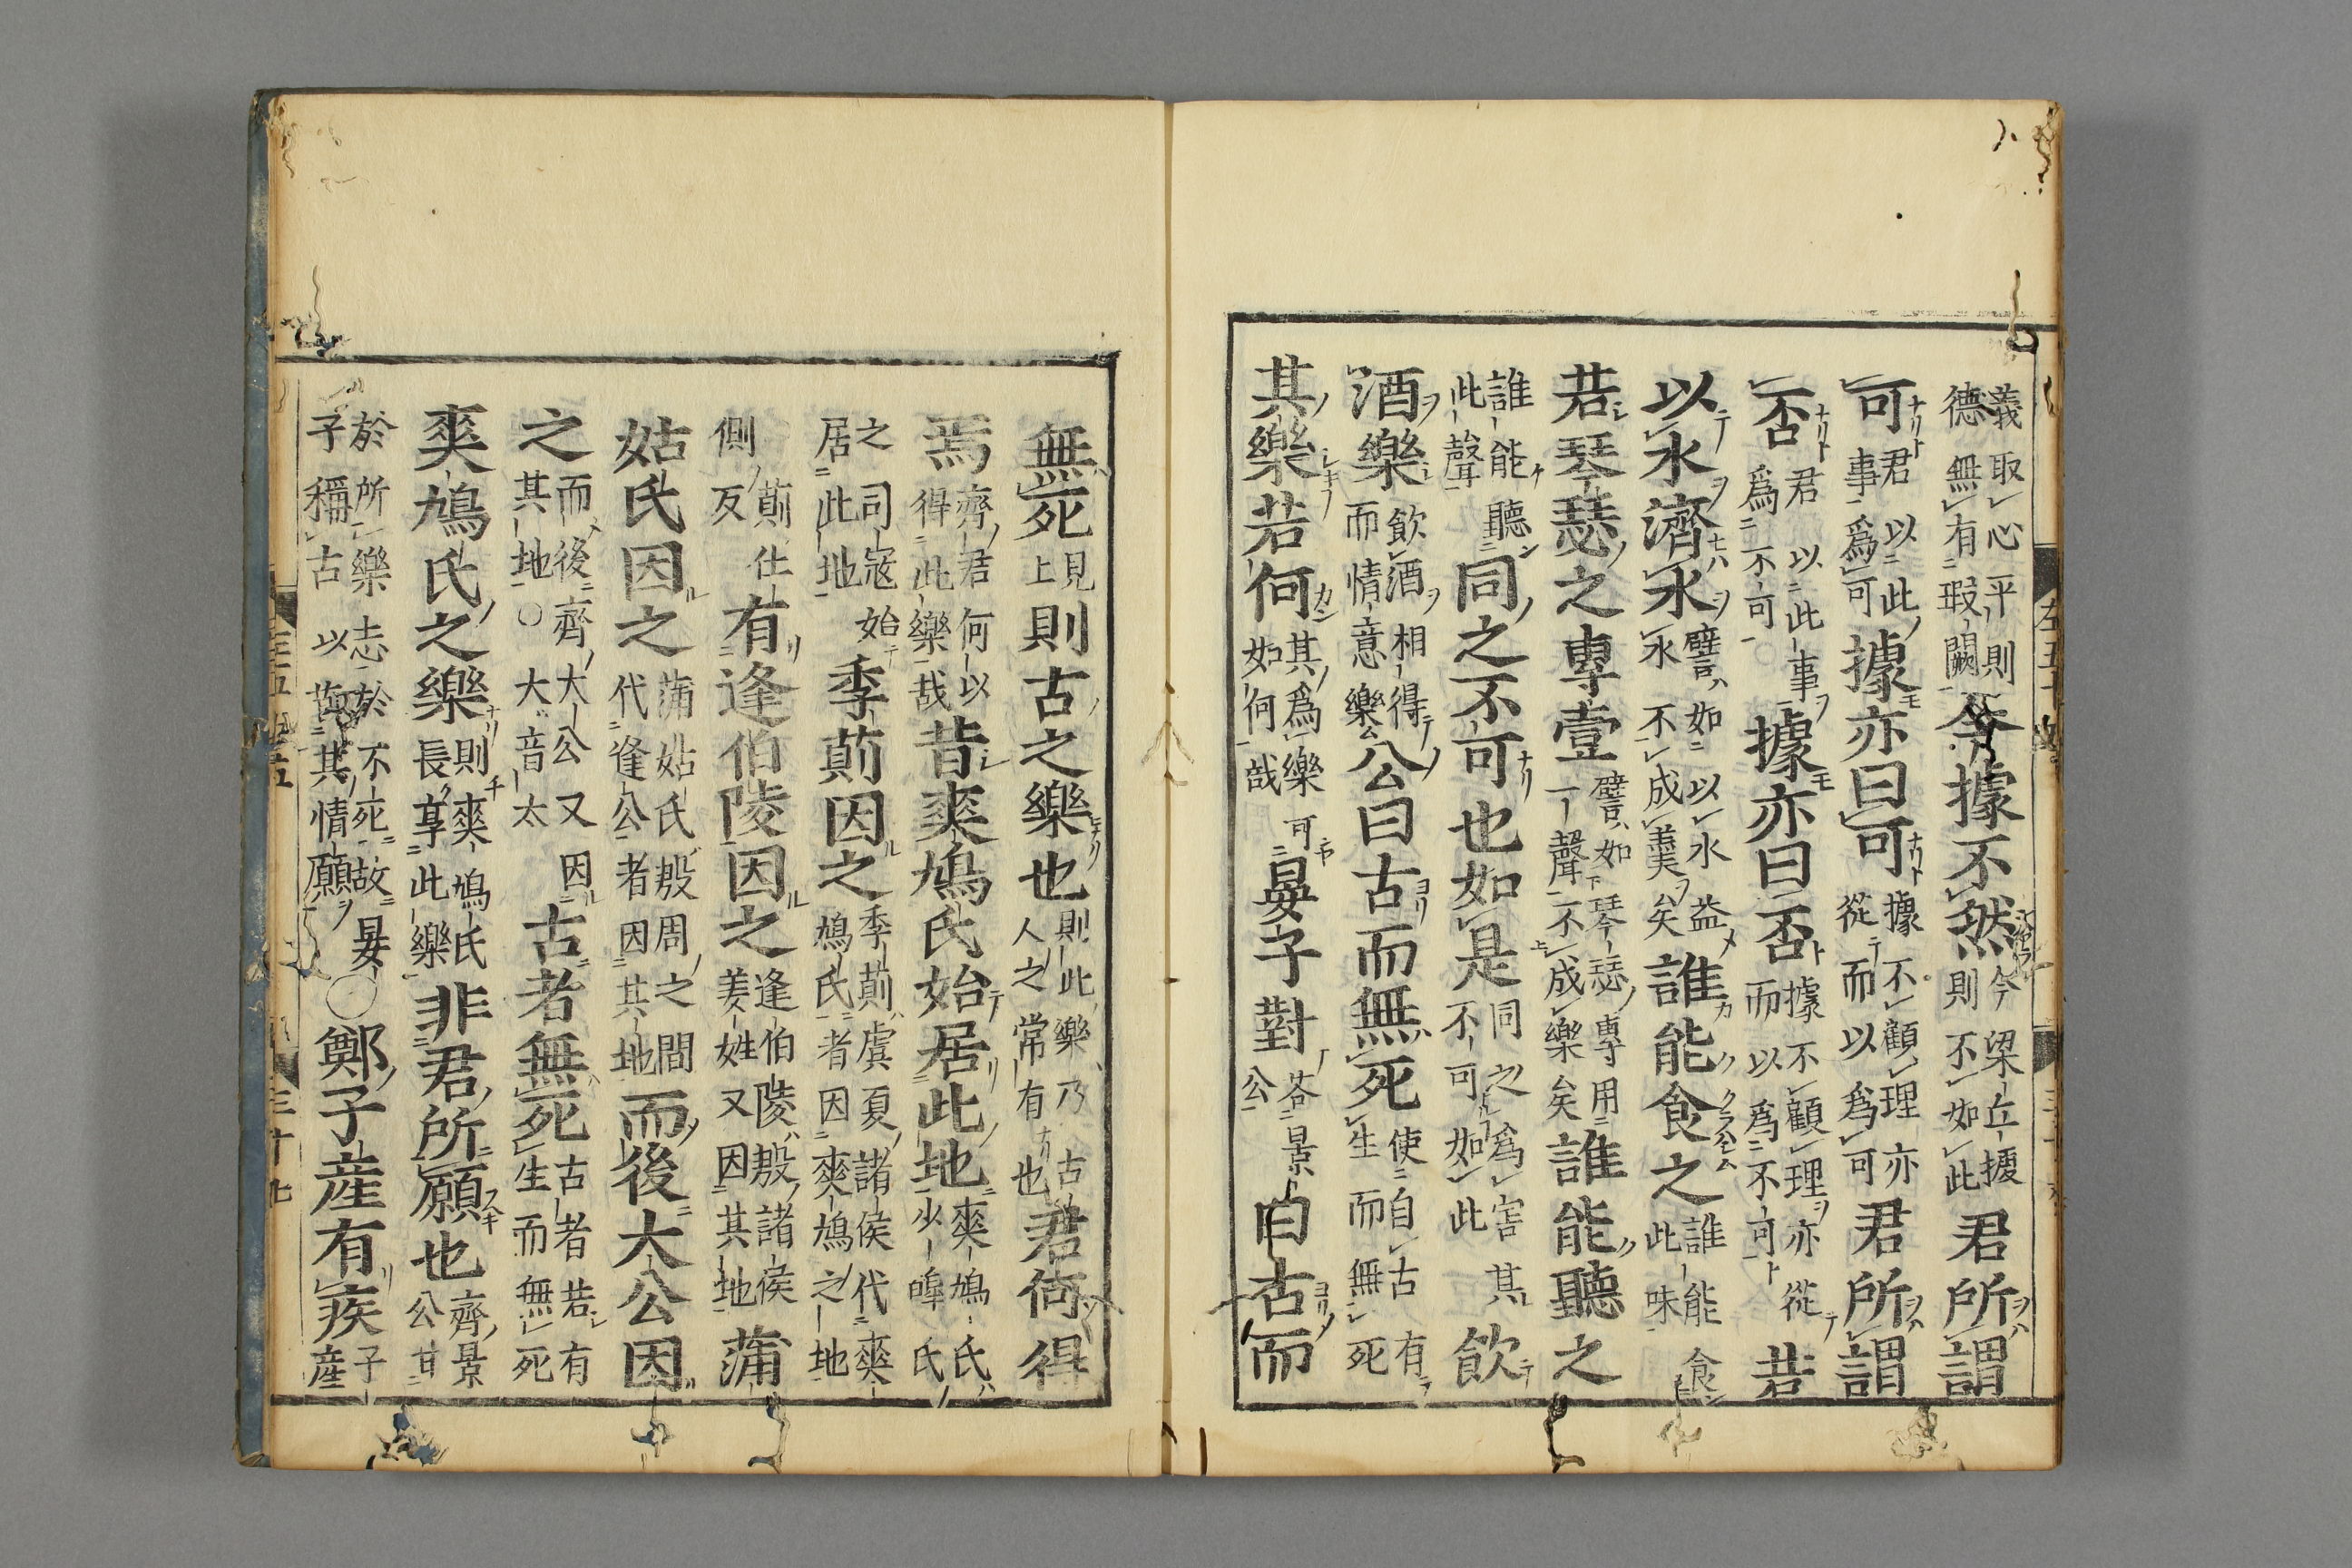 義取心平則
德無有瑕闕
今據不然
今梁丘據
則不如此
君所謂
可
君以此
事爲可
據亦曰可
據不顧理亦
從而以爲可
君所謂
否
君以此事
爲不可
據亦曰否
據不顧理亦從
而以爲不可
若
以水濟水
譬如以水益
水不成羹矣
誰能食之
誰能食
此味
若琴瑟之專壹
譬如琴瑟專用
一聲不成樂矣
誰能聽之
誰能聽
此聲
同之不可也如是
同之爲害其
不可如此
飲
酒樂
飲酒相得
而情意樂
公曰古而無死
使自古有
生而無死
其樂若何
其爲樂可
如何哉
晏子對
荅景
公
曰古而
無死
見
上
則古之樂也
則此樂乃古
人之常有也
君何得
焉
齊君何以
得此樂哉
昔爽鳩氏始居此地
爽鳩氏
少皞氏
之司寇始
居此地
季萴因之
季萴虞夏諸侯代爽
鳩氏者因爽鳩之地
萴仕
側反
有逢伯陵因之
逢伯陵殷諸侯
姜姓又因其地
蒲
姑氏因之
蒲姑氏殷周之間
代逢公者因其地
而後大公因
之
而後齊大公又因
其地〇大音太
古者無死
古者若有
生而無死
爽鳩氏之樂
則爽鳩氏
長享此樂
非君所願也
齊景
公甘
於所樂志於不死故晏
子稱古以誨其情願
〇鄭子産有疾
子
産